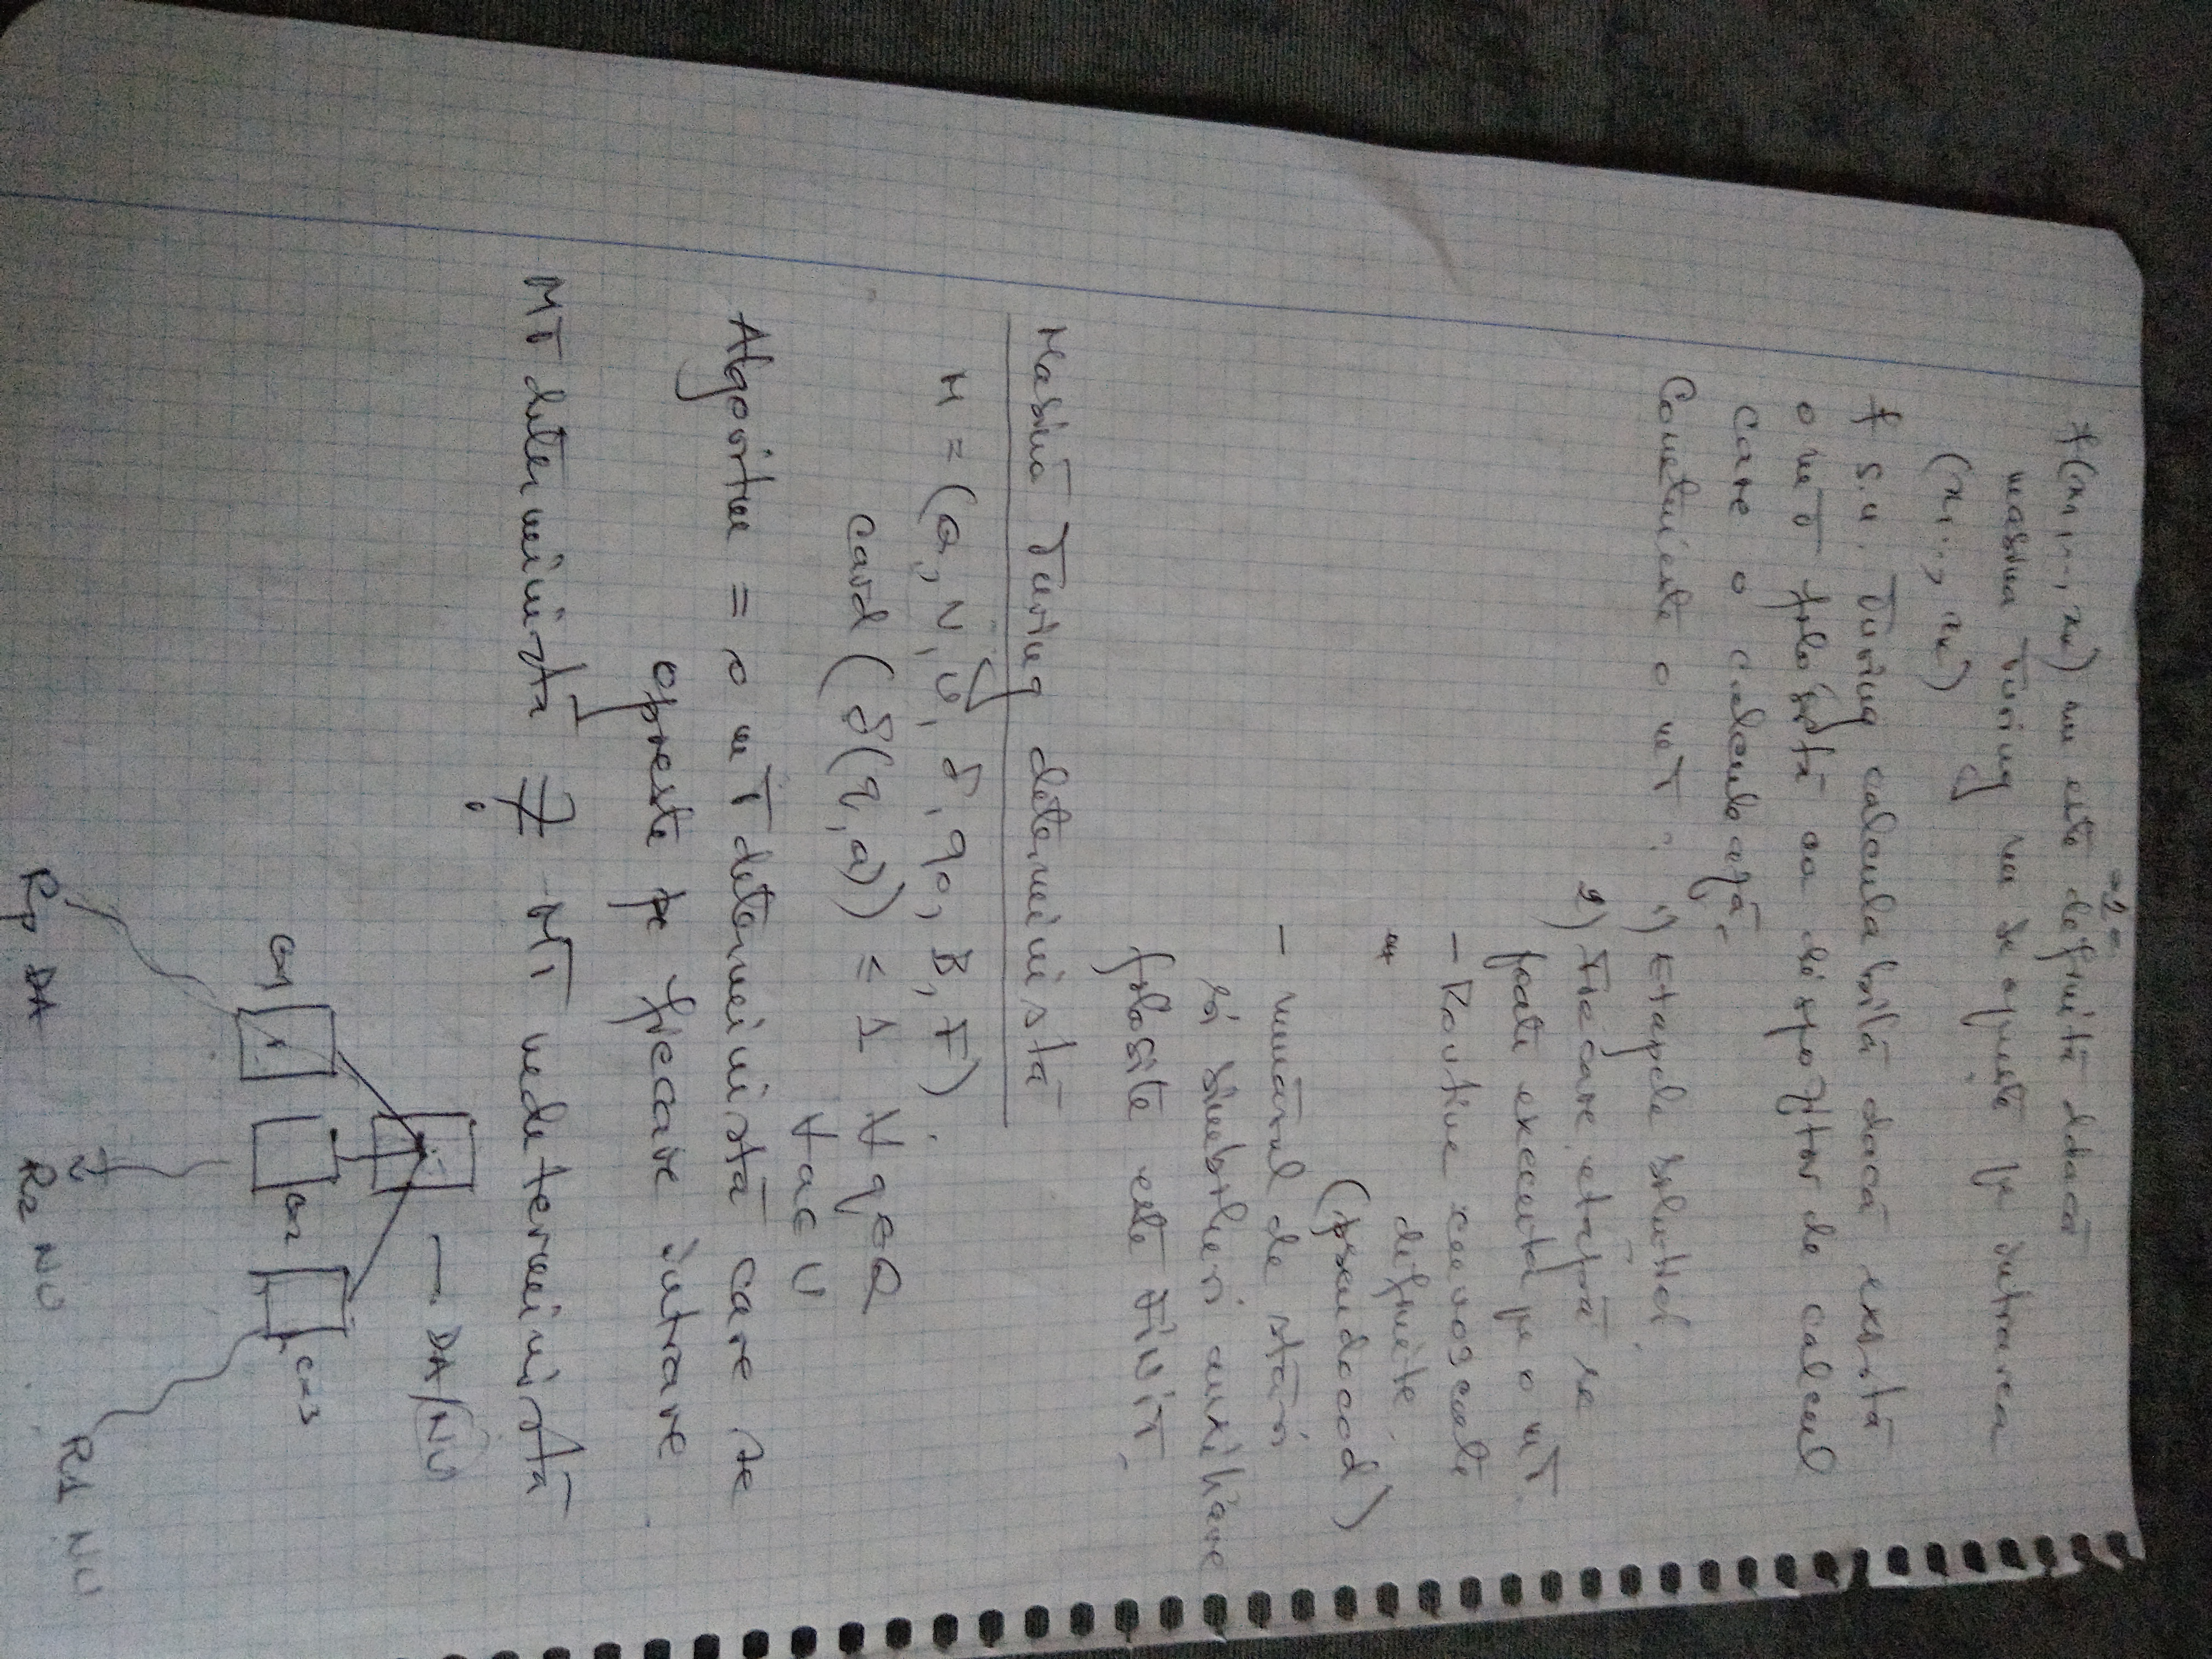 -2-
f(x1,..., xk) nu este definită ddacă
masina Turing nu se opreste pe intrarea
(x1..., xk)
f s.n. Turing calculabilă dacă există
o mT folosită ca dispozitiv de calcul
care o calculează.
Construieste o mT : 1) Etapele soluției.
2) Fiecare etapă se
poate executa pe o mT.
- Routine cunoscute
definite
(pseudocod)
- numărul de stări
si simboluri auxiliare
folosite este FINIT.
Masină Turing deterministă
M = (Q, V, U, δ, q0, B, F).
card (δ(q,a)) ≤ 1 ∀q∈Q
∀a∈U
Algoritm = o mT deterministă care se
opreste pe fiecare intrare
MT deterministă MT nedeterministă
DA/NU
C=1 C=2 C=3
Rp DA R2 NU R1 NU